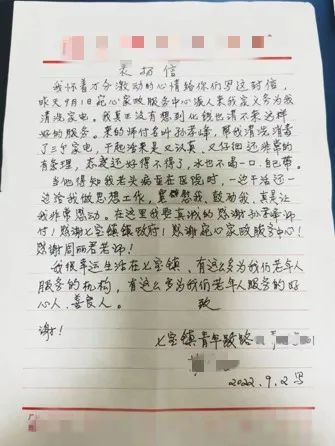 表扬信
我怀着万分激动的心情给你们写这封信,
昨天9月1日宛心家政服务中心派人来我家义务为我
清洗家电。我真正没有想到化钱也请不来这样
好的服务。来的师付者叶孙孝峰,帮我清洗消毒
了三个家电,干起活来是又认真、又仔细还非常的
有条理,态度还好得不得了,水也不喝一口,自己带。
当他得知我老头病重在医院时,一边干活还一
边给我做思想工作,安慰我,鼓励我,真是让
我非常感动。在这里我要真诚的感谢孙孝峰师
付!感谢七宝镇镇政府!感谢宛心家政服务中心!
感谢周丽君老师!
我很幸运生活在七宝镇、有这么多为我们老年人
服务的机构,有这么多为我们老年人服务的好
心人、善良人。
致
谢!
七宝镇青年路
2022.9.2写